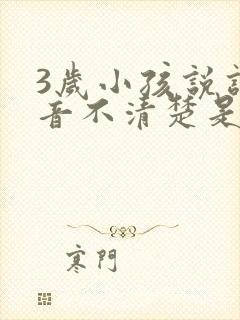 3歲小孩說
音不清楚是
寒門